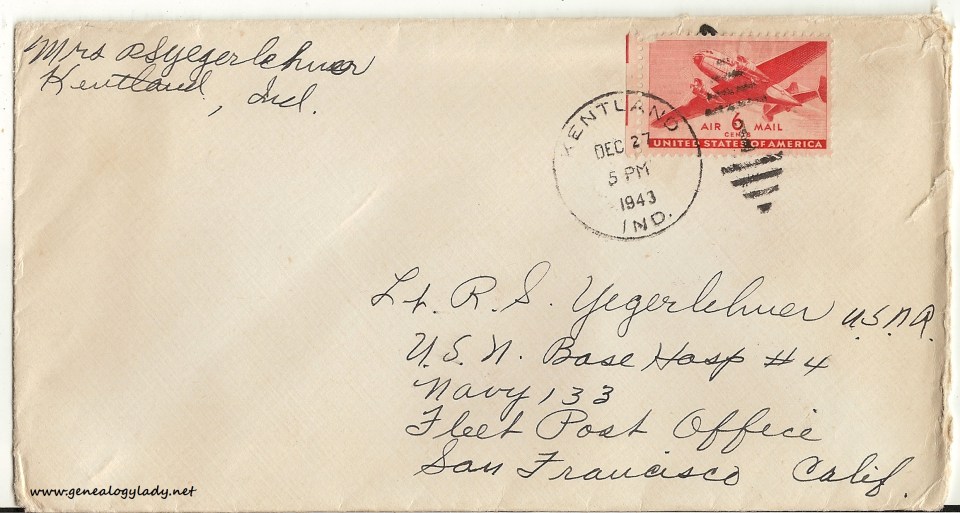 Mrs RSYegerlehner
Kentland, Ind.
KENTLAND
DEC 27
5 PM
1943
IND.
AIR 6 MAIL
CENTS
UNITED STATES OF AMERICA
Lt. R. S. Yegerlehner U.S.N.R.
U.S.N. Base Hosp #4
Navy 133
Fleet Post Office
San Francisco Calif.
www.genealogylady.net